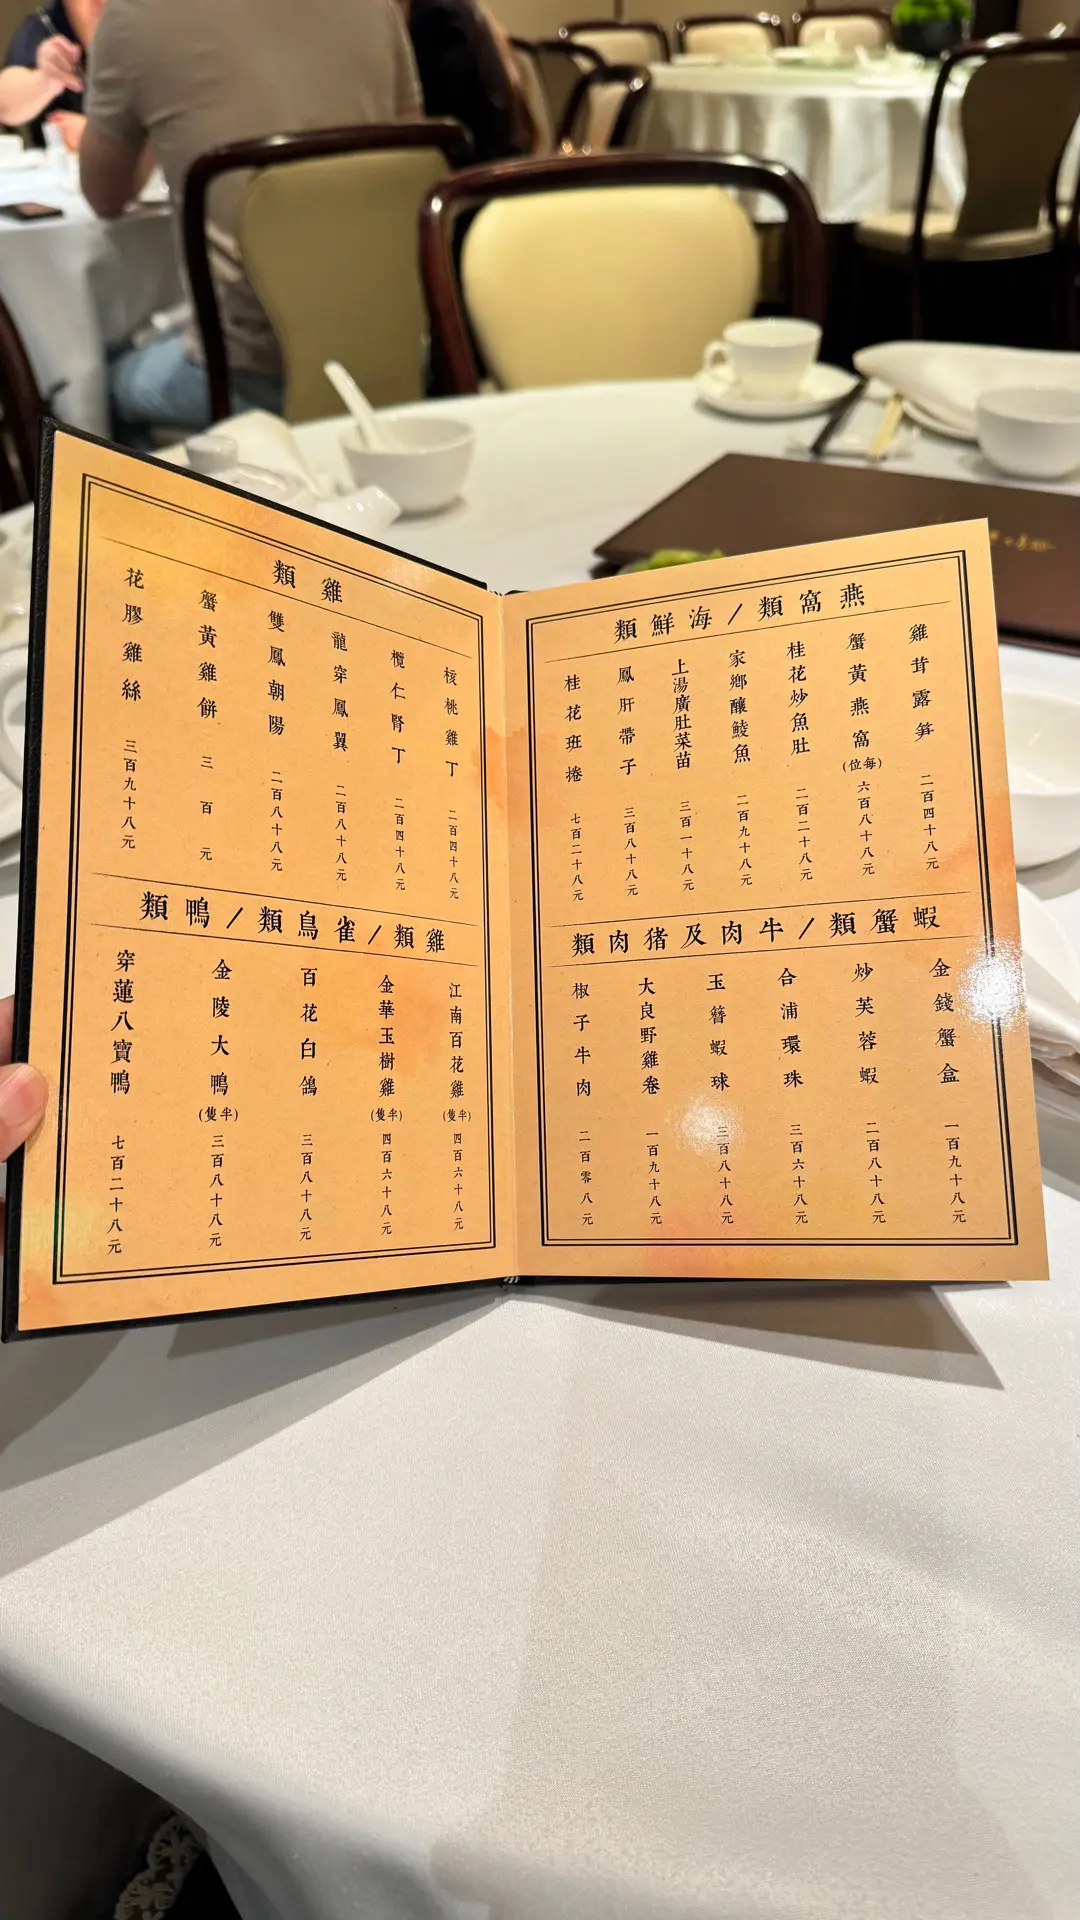 燕窩類/海鮮類
雞茸露笋 二百四十八元
蟹黃燕窩(每位) 六百八十八元
桂花炒魚肚 二百二十八元
家鄉釀鯪魚 二百九十八元
上湯廣肚菜苗 三百一十八元
鳳肝帶子 三百八十八元
桂花班捲 七百二十八元
蝦蟹類/牛肉及猪肉類
金錢蟹盒 一百九十八元
炒芙蓉蝦 二百八十八元
合浦環珠 三百六十八元
玉簪蝦球 三百八十八元
大良野雞卷 一百九十八元
椒子牛肉 二百零八元
雞類
核桃雞丁 二百四十八元
欖仁腎丁 二百四十八元
龍穿鳳翼 二百八十八元
雙鳳朝陽 二百八十八元
蟹黃雞餅 三百元
花膠雞絲 三百九十八元
雞類/雀鳥類/鴨類
江南百花雞(半隻) 四百六十八元
金華玉樹雞(半隻) 四百六十八元
百花白鴿 三百八十八元
金陵大鴨(半隻) 三百八十八元
穿蓮八寶鴨 七百二十八元